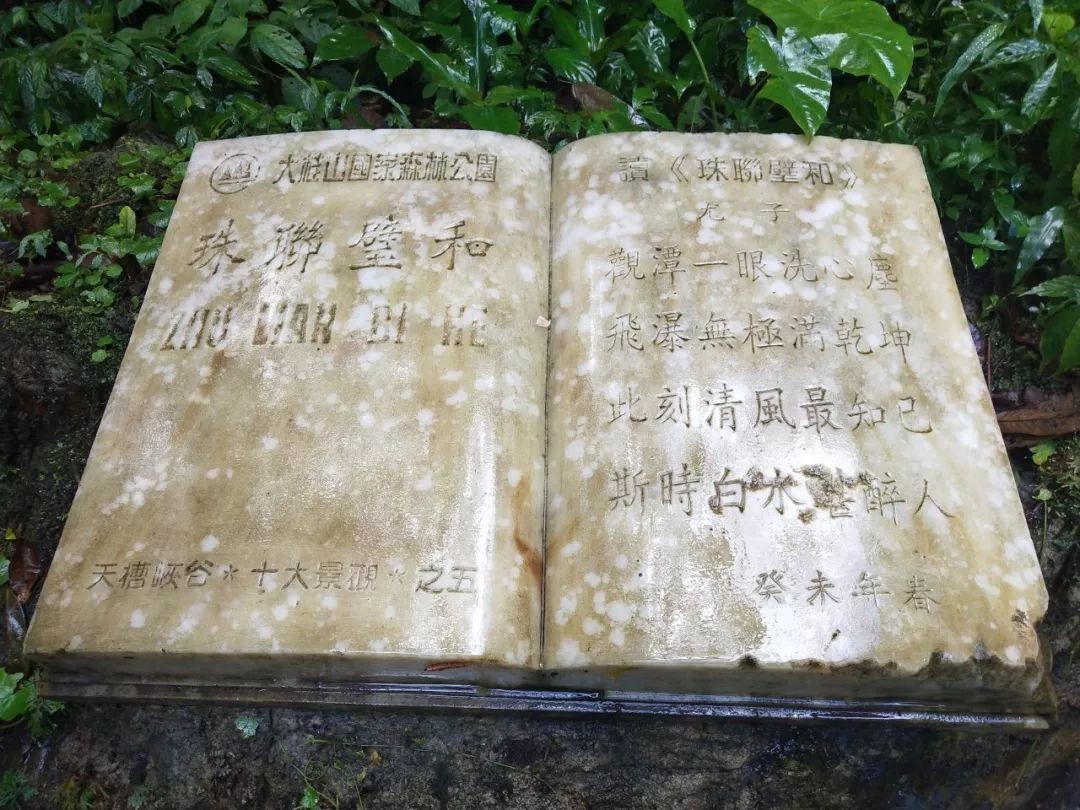 大桂山國家森林公園
珠聯璧和
ZHU LIAN BI HE
天槽峡谷*十大景觀*之五
讀《珠聯璧和》
尤子
觀潭一眼洗心塵
飛瀑無極滿乾坤
此刻清風最知己
斯時白水醉人
癸未年春